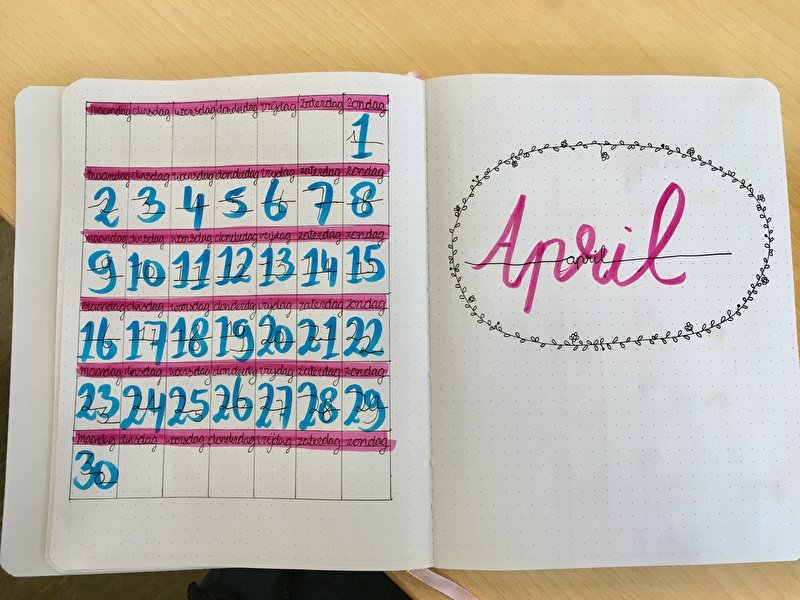 maandag dinsdag woensdag donderdag vrijdag zaterdag zondag
1
maandag dinsdag woensdag donderdag vrijdag zaterdag zondag
2 3 4 5 6 7 8
maandag dinsdag woensdag donderdag vrijdag zaterdag zondag
9 10 11 12 13 14 15
maandag dinsdag woensdag donderdag vrijdag zaterdag zondag
16 17 18 19 20 21 22
maandag dinsdag woensdag donderdag vrijdag zaterdag zondag
23 24 25 26 27 28 29
maandag dinsdag woensdag donderdag vrijdag zaterdag zondag
30
April
april